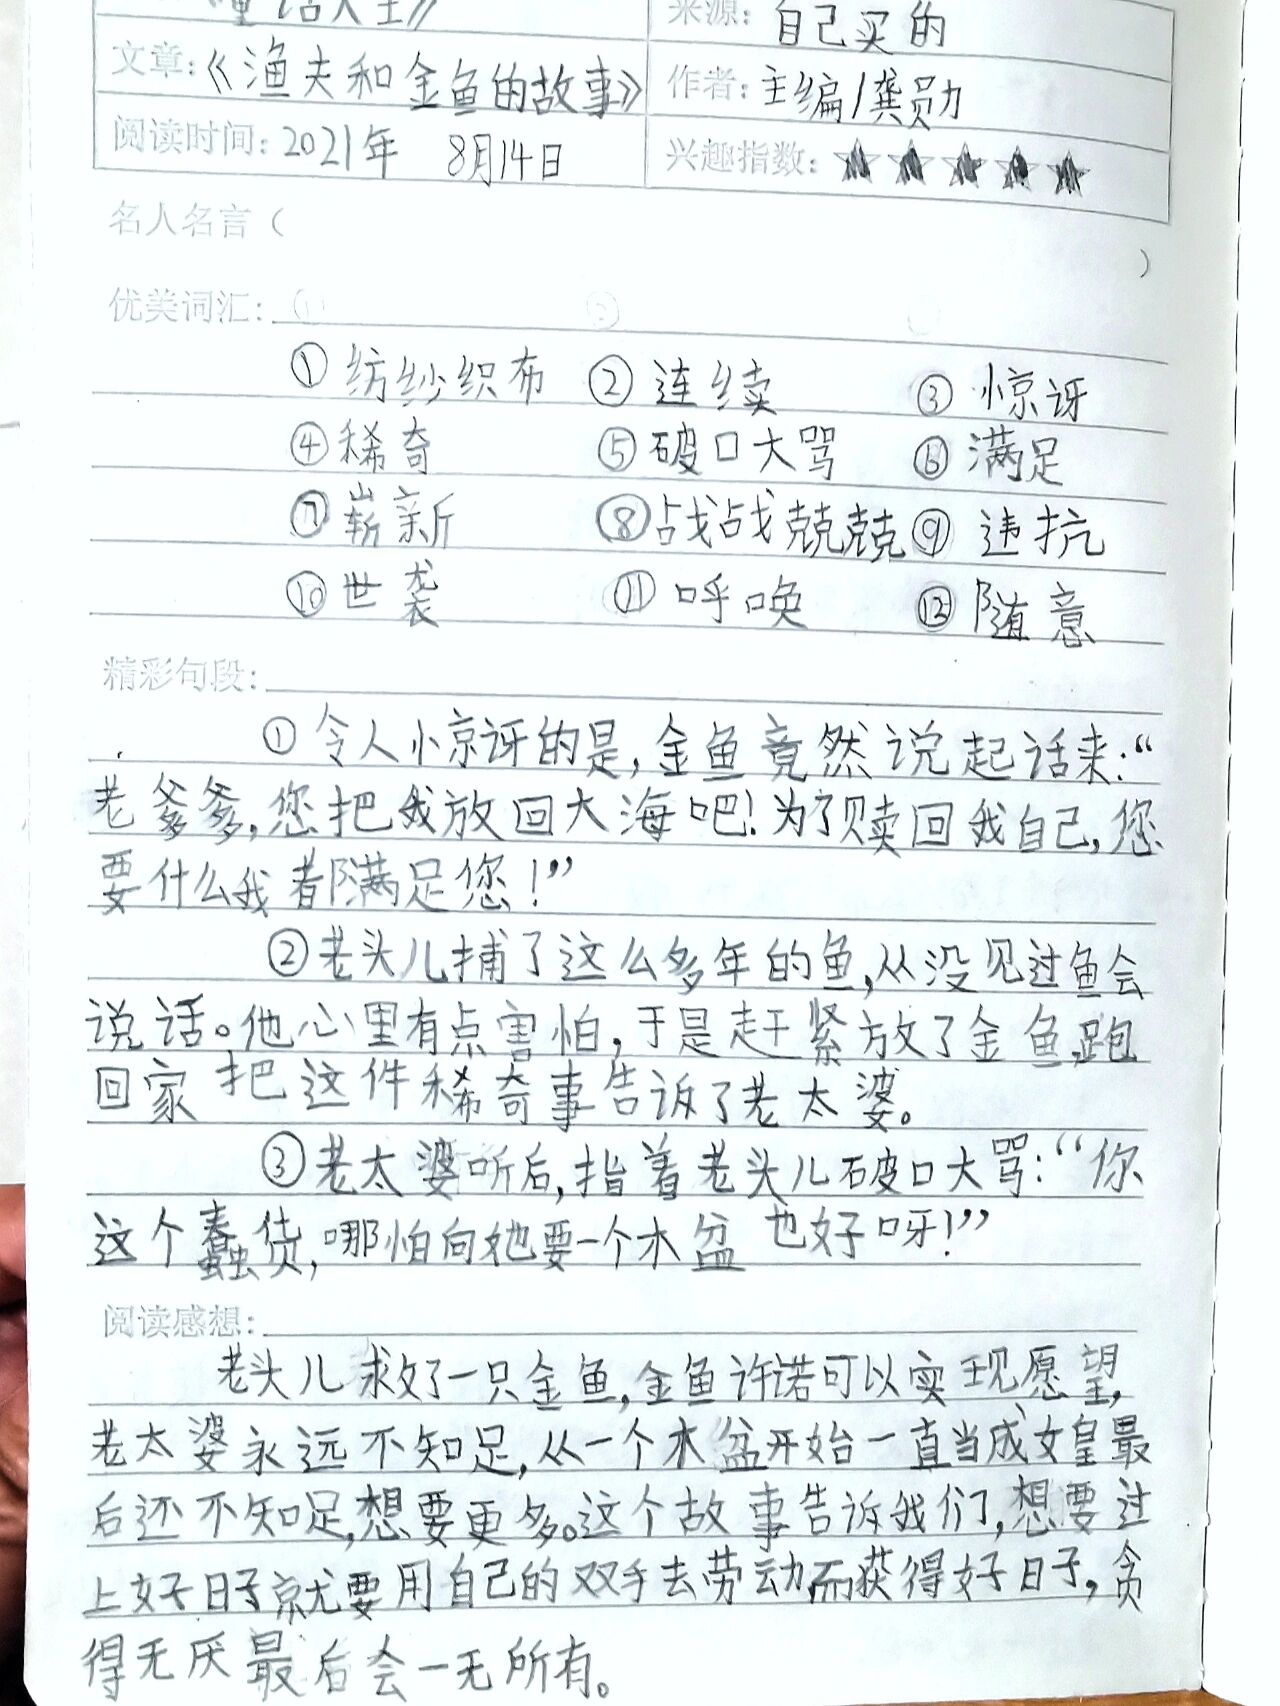 《童话大王》 来源: 自己买的
文章:《渔夫和金鱼的故事》 作者: 主编/龚勋
阅读时间: 2021年 8月14日 兴趣指数: ★★★★★
名人名言(
)
优美词汇:
① 纺纱织布 ② 连续 ③ 惊讶
④ 稀奇 ⑤ 破口大骂 ⑥ 满足
⑦ 崭新 ⑧ 战战兢兢 ⑨ 违抗
⑩ 世袭 ⑪ 呼唤 ⑫ 随意
精彩句段:
① 令人惊讶的是,金鱼竟然说起话来:“
老爹爹,您把我放回大海吧!为了赎回我自己,您
要什么我都满足您!”
② 老头儿捕了这么多年的鱼,从没见过鱼会
说话。他心里有点害怕,于是赶紧放了金鱼,跑
回家把这件稀奇事告诉了老太婆。
③ 老太婆听后,指着老头儿破口大骂:“你
这个蠢货,哪怕向她要一个木盆也好呀!”
阅读感想:
老头儿救了一只金鱼,金鱼许诺可以实现愿望,
老太婆永远不知足,从一个木盆开始一直当成女皇最
后还不知足,想要更多。这个故事告诉我们,想要过
上好日子就要用自己的双手去劳动而获得好日子,贪
得无厌最后会一无所有。